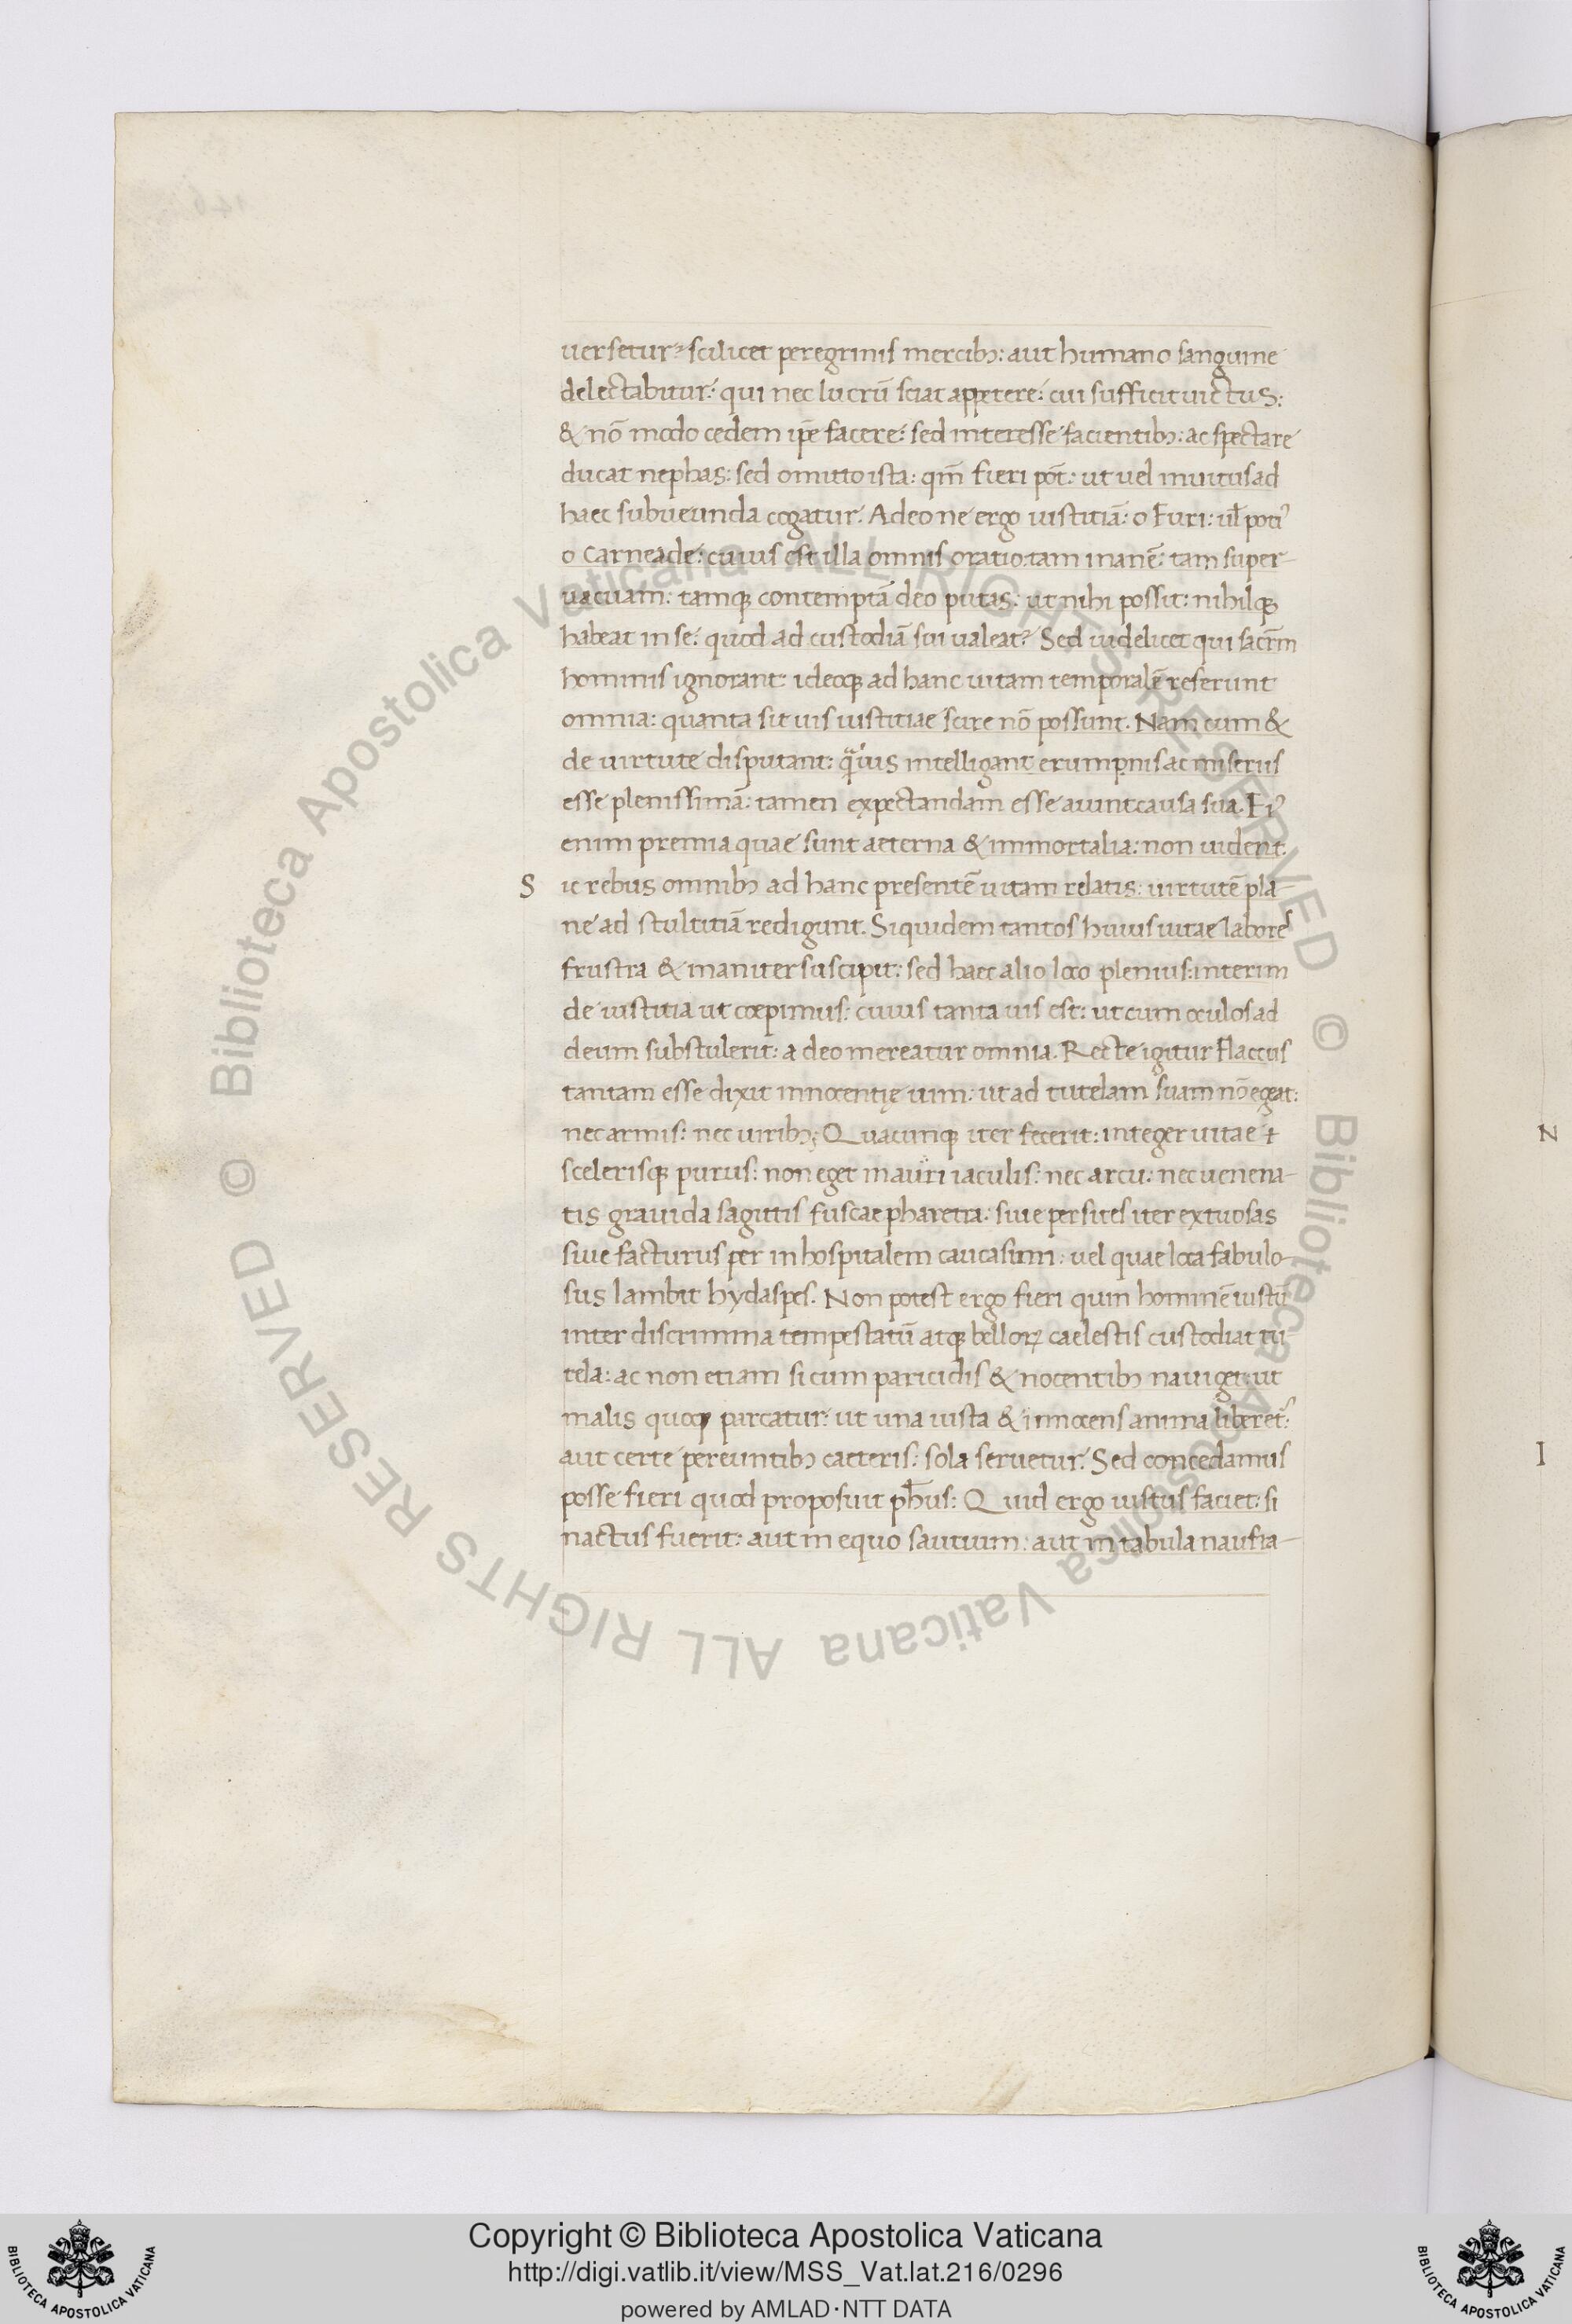 uersetur? scilicet peregrinis mercibꝫ: aut humano sanguine
delectabitur: qui nec lucrū sciat appetere: cui sufficit uictus:
& nō modo cedem ip̄e facere: sed interesse facientibꝫ: ac spectare
ducat nephas: sed omitto ista: qm̄ fieri pōt: ut uel inuitus ad
haec subueunda cogatur. Adeo ne ergo iustitiā: o Furi: ul̄ poti᾽
o Carneade: cuius est illa omnis oratio: tam inanē: tam super-
uacuam: tamqꝫ contemptā deo putas: ut nihi possit: nihilqꝫ
habeat in se: quod ad custodiā sui ualeat? Sed uidelicet qui sacr̄m
hominis ignorant: ideoqꝫ ad hanc uitam temporalē referunt
omnia: quanta sit uis iustitiae scire nō possunt. Nam cum &
de uirtute disputant: intelligant erumpnis ac miseriis
esse plenissimā: tamen expectandam esse aiunt causa sua. Ei᾽
enim premia quae sunt aeterna & immortalia: non uident.
S ic rebus omnibꝫ ad hanc presentē uitam relatis: uirtutē pla-
ne ad stultitiā redigunt. Siquidem tantos huius uitae labores
frustra & inaniter suscipit: sed haec alio loco plenius: interim
de iustitia ut coepimus: cuius tanta uis est: ut cum oculos ad
deum substulerit: a deo mereatur omnia. Recte igitur Flaccus
tantam esse dixit innocentię uim: ut ad tutelam suam nō egeat:
nec armis: nec uiribꝫ; Quacunqꝫ iter fecerit: integer uitae
scelerisqꝫ purus: non eget mauri iaculis: nec arcu: nec uenena-
tis grauida sagittis fuscae pharetra: siue per sites iter extuosas
siue facturus per inhospitalem caucasum: uel quae loca fabulo-
sus lambit hydaspes. Non potest ergo fieri quin hominē iustū
inter discrimina tempestatū atqꝫ belloꝝ caelestis custodiat tu
tela: ac non etiam si cum paricidis & nocentibꝫ nauiget: ut
malis quoqꝫ parcatur: ut una iusta & innocens anima liberet᾽:
aut certe pereuntibꝫ caeteris: sola seruetur. Sed concedamus
posse fieri quod proposuit ph̄us: Quid ergo iustus faciet: si
nactus fuerit: aut in equo sautium: aut in tabula naufra-
N
I
© Biblioteca Apostolica Vaticana ALL RIGHTS RESERVED © Biblioteca Apostolica Vaticana ALL RIGHTS RESERVED
Copyright © Biblioteca Apostolica Vaticana
http://digi.vatlib.it/view/MSS_Vat.lat.216/0296
powered by AMLAD·NTT DATA
BIBLIOTECA APOSTOLICA VATICANA
BIBLIOTECA APOSTOLICA VATICANA